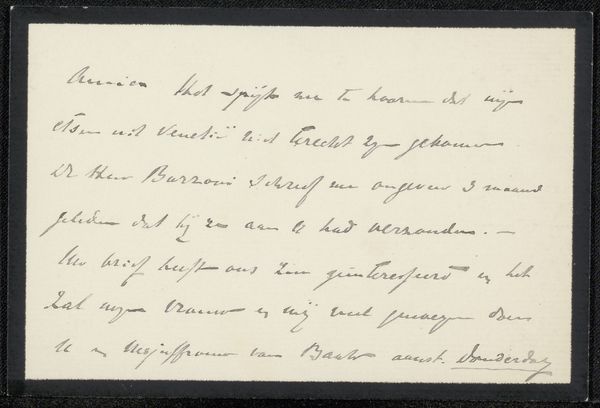 Amice Het spijt me te hooren dat mijn
etsen uit Venetië niet terecht zijn gekomen
De Heer Barzoni schreef me ongeveer 3 maand
geleden dat hij ze aan U had verzonden. –
Uw brief heeft ons zeer geinteresseerd en het
zal mijn vrouw en mij veel genoegen doen
U en Mejuffrouw van Baak aanst. Donderdag